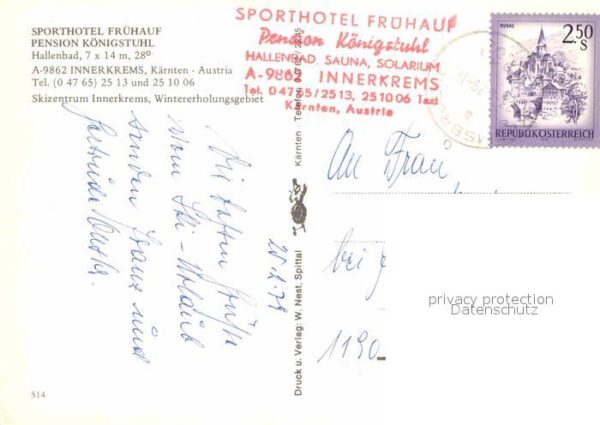 SPORTHOTEL FRÜHAUF
PENSION KÖNIGSTUHL
Hallenbad, 7 x 14 m, 28º
A-9862 INNERKREMS, Kärnten - Austria
Tel. (0 47 65) 25 13 und 25 10 06
Skizentrum Innerkrems, Wintererholungsgebiet
SPORTHOTEL FRÜHAUF
Pension Königstuhl
HALLENBAD, SAUNA, SOLARIUM
A-9862 INNERKREMS
Tel. 04765/2513, 251006 Taxi
Kärnten, Austria
MURAU
2.50
S
REPUBLIK ÖSTERREICH
Die besten Grüße
vom Ski-Urlaub
senden Franz und
25.2.79
Druck u. Verlag: W. Nest, Spittal
Kärnten - Telefon 04762/
An Frau
bei
1190
privacy protection
Datenschutz
514